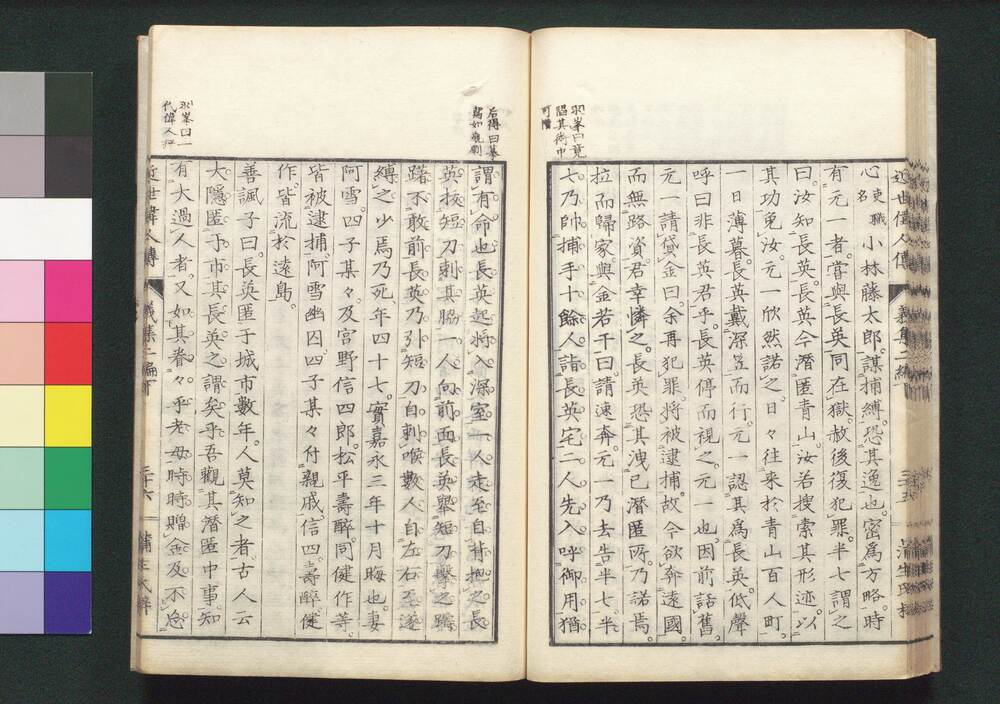 近世偉人傳
義集二編
三十五
心吏職名小林藤太郎。謀捕縛。恐其逸也。密爲方略。時
有元一者。嘗與長英同在獄。赦後復犯罪。半七謂之
曰。汝知長英。長英今潛匿青山。汝若搜索其形迹。以
其功免汝。元一欣然諾之。日々往来於青山百人町。
一日薄暮。長英戴深笠而行。元一認其爲長英。低聲
呼曰。非長英君乎。長英停而視之。元一也。因前話舊。
元一請貸金曰。余再犯罪。將被逮捕。故今欲奔遠國。
而無路資。君幸憐之。長英恐其洩已潛匿所。乃諾焉。
拉而歸家。與金若干曰。請速奔。元一乃去告半七。半
七乃帥捕手十餘人。詣長英宅。二人先入。呼御用。猶
謂有命也。長英起將入深室。一人走至自背抱之。長
英拔短刀刺其脇。一人向前面。長英舉短刀擊之。躊
躇不敢前。長英乃引短刀自刺喉。數人自左右至遂
縛之。少焉乃死。年四十七。實嘉永三年十月晦也。妻
阿雪。四子某々。及宮野信四郎。松平壽醉。同健作等。
皆被逮捕。阿雪幽囚。四子某々付親戚。信四壽醉健
作。皆流於遠島。
善諷子曰。長英匿于城市數年。人莫知之者。古人云
大隱匿于市。其長英之謂矣乎。吾觀其潛匿中事。知
有大過人者。又如其眷々乎老母。時時贈金及不怠
近世偉人傳
義集二編
三十六